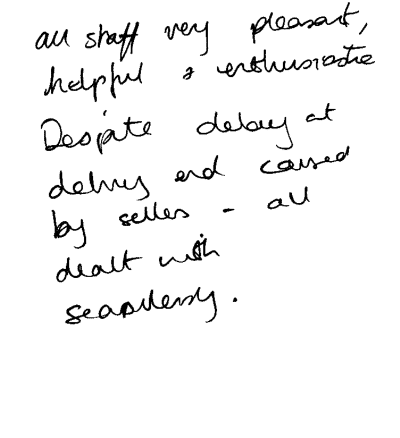 all staff very pleasant,
helpful & enthusiastic
Despite delay at
delivery end caused
by sellers - all
dealt with
seamlessly.